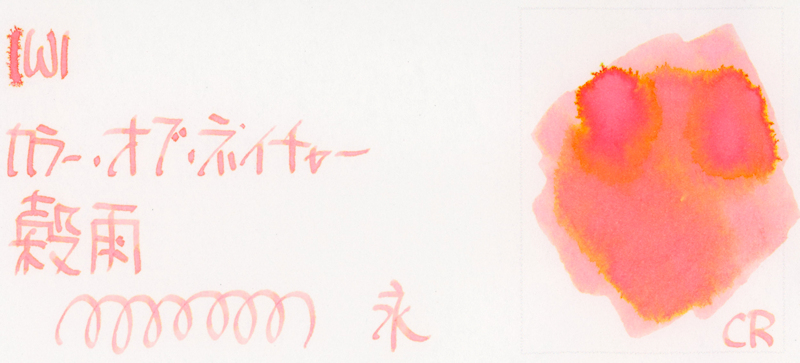 IWI
カラー・オブ・ネイチャー
穀雨
永
CR